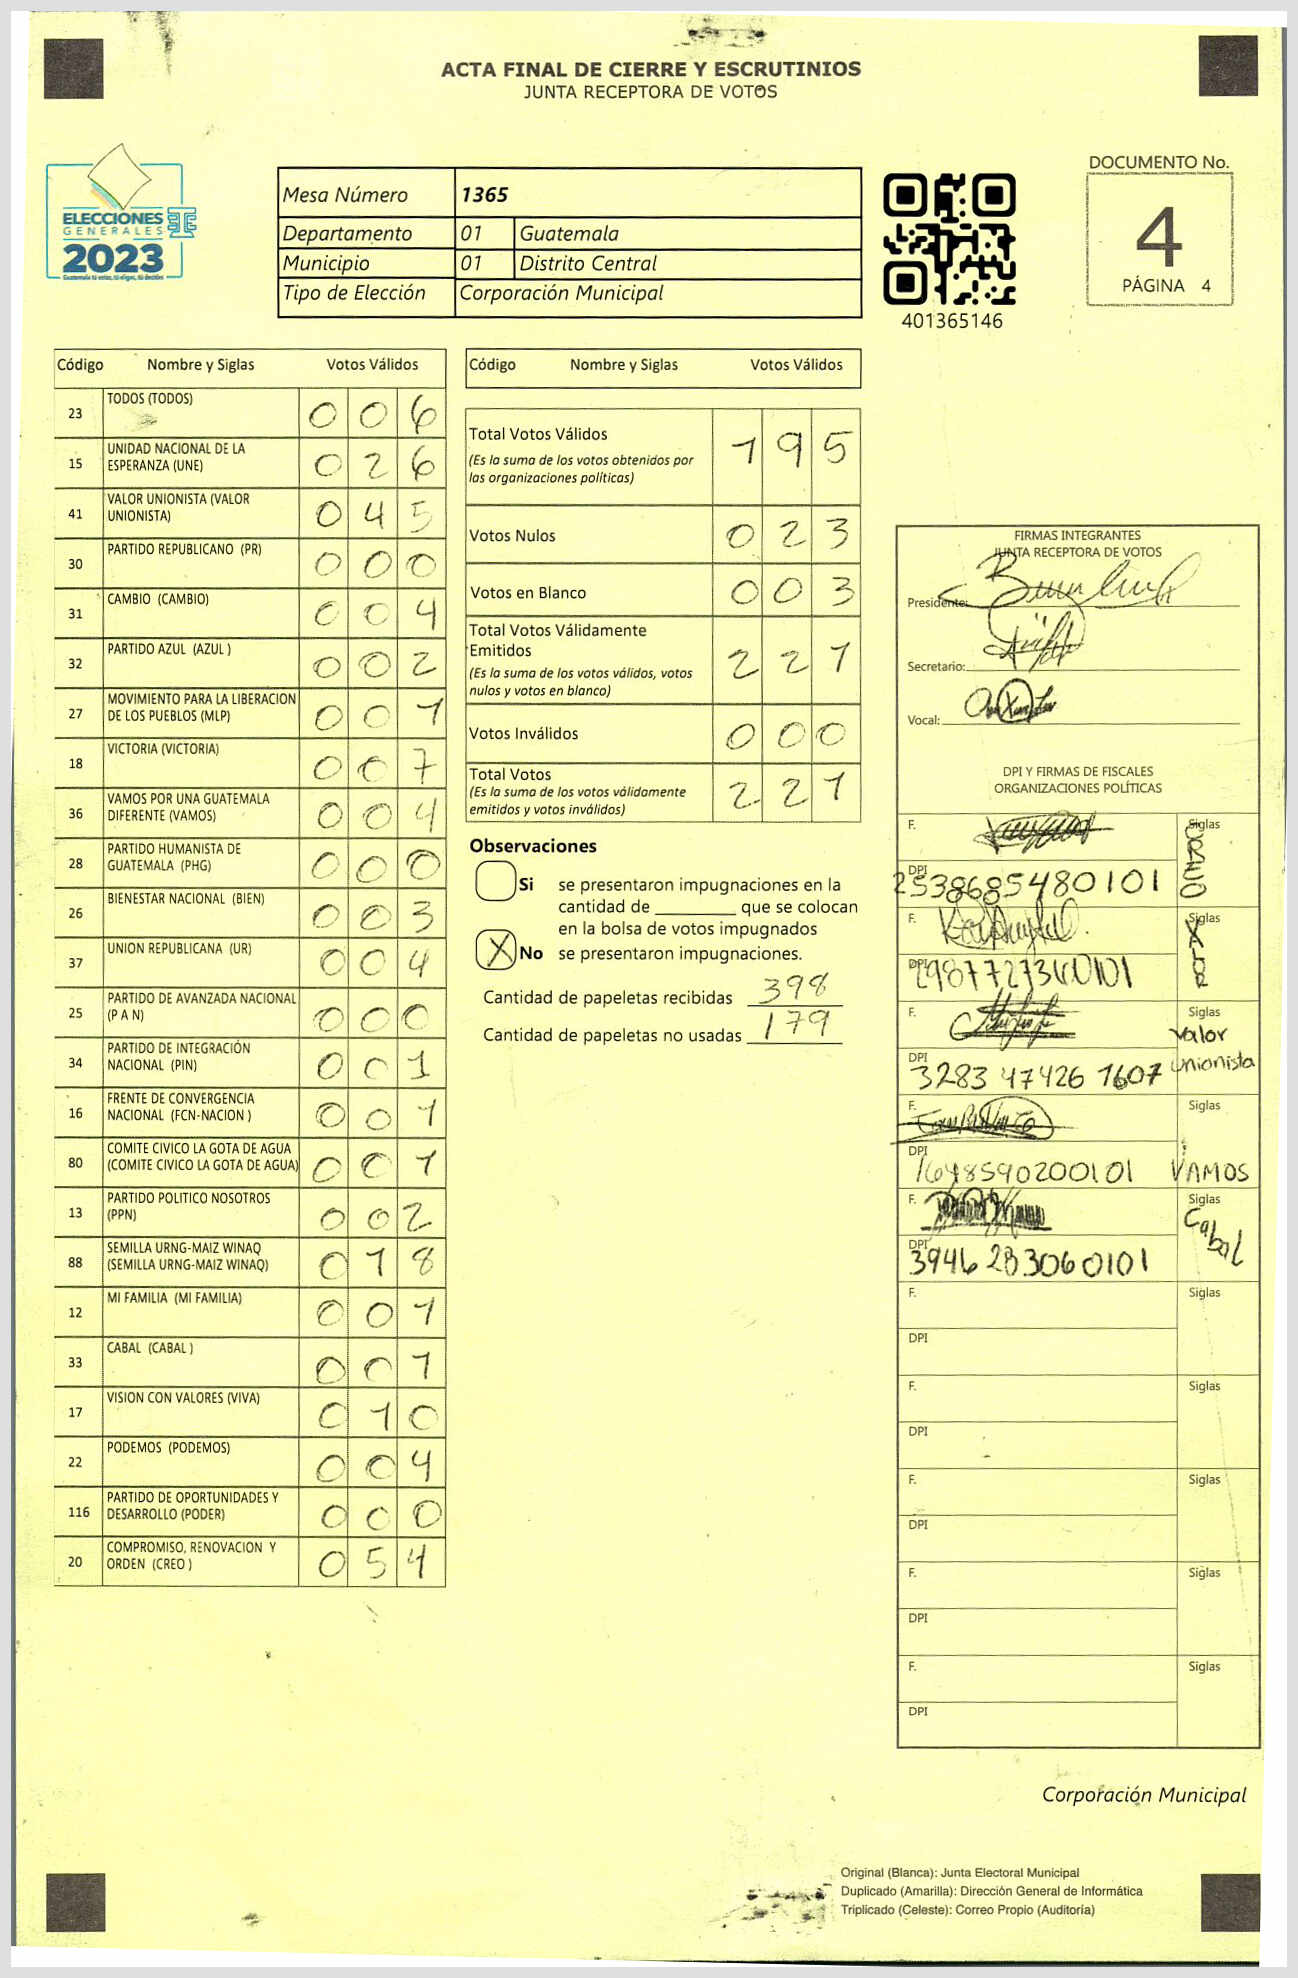 ACTA FINAL DE CIERRE Y ESCRUTINIOS
JUNTA RECEPTORA DE VOTOS
ELECCIONES
GENERALES
2023
Guatemala tú votas, tú eliges, tú decides
Mesa Número 1365
Departamento 01 Guatemala
Municipio 01 Distrito Central
Tipo de Elección Corporación Municipal
401365146
DOCUMENTO No.
4
PÁGINA 4
Código Nombre y Siglas Votos Válidos
23 TODOS (TODOS) 0 0 6
15 UNIDAD NACIONAL DE LA
ESPERANZA (UNE) 0 2 6
41 VALOR UNIONISTA (VALOR
UNIONISTA) 0 4 5
30 PARTIDO REPUBLICANO (PR) 0 0 0
31 CAMBIO (CAMBIO) 0 0 4
32 PARTIDO AZUL (AZUL ) 0 0 2
27 MOVIMIENTO PARA LA LIBERACION
DE LOS PUEBLOS (MLP) 0 0 1
18 VICTORIA (VICTORIA) 0 0 7
36 VAMOS POR UNA GUATEMALA
DIFERENTE (VAMOS) 0 0 4
28 PARTIDO HUMANISTA DE
GUATEMALA (PHG) 0 0 0
26 BIENESTAR NACIONAL (BIEN) 0 0 3
37 UNION REPUBLICANA (UR) 0 0 4
25 PARTIDO DE AVANZADA NACIONAL
(P A N) 0 0 0
34 PARTIDO DE INTEGRACIÓN
NACIONAL (PIN) 0 0 1
16 FRENTE DE CONVERGENCIA
NACIONAL (FCN-NACION ) 0 0 1
80 COMITE CIVICO LA GOTA DE AGUA
(COMITE CIVICO LA GOTA DE AGUA) 0 0 1
13 PARTIDO POLITICO NOSOTROS
(PPN) 0 0 2
88 SEMILLA URNG-MAIZ WINAQ
(SEMILLA URNG-MAIZ WINAQ) 0 1 8
12 MI FAMILIA (MI FAMILIA) 0 0 1
33 CABAL (CABAL ) 0 0 1
17 VISION CON VALORES (VIVA) 0 1 0
22 PODEMOS (PODEMOS) 0 0 4
116 PARTIDO DE OPORTUNIDADES Y
DESARROLLO (PODER) 0 0 0
20 COMPROMISO, RENOVACION Y
ORDEN (CREO ) 0 5 4
Código Nombre y Siglas Votos Válidos
Total Votos Válidos 1 9 5
(Es la suma de los votos obtenidos por
las organizaciones políticas)
Votos Nulos 0 2 3
Votos en Blanco 0 0 3
Total Votos Válidamente
Emitidos 2 2 1
(Es la suma de los votos válidos, votos
nulos y votos en blanco)
Votos Inválidos 0 0 0
Total Votos 2 2 1
(Es la suma de los votos válidamente
emitidos y votos inválidos)
Observaciones
Si se presentaron impugnaciones en la
cantidad de ________ que se colocan
en la bolsa de votos impugnados
X No se presentaron impugnaciones.
Cantidad de papeletas recibidas 398
Cantidad de papeletas no usadas 179
FIRMAS INTEGRANTES
JUNTA RECEPTORA DE VOTOS
Presidente:
Secretario:
Vocal:
DPI Y FIRMAS DE FISCALES
ORGANIZACIONES POLÍTICAS
F. Siglas CREO
DPI 2538685480101
F. Siglas VALOR
DPI 2987727340101
F. Siglas Valor
DPI 3283 47426 1607 unionista
F. Siglas
DPI 1648590200101 VAMOS
F. Siglas Cabal
DPI 3946 283060101
F. Siglas
DPI
F. Siglas
DPI
F. Siglas
DPI
F. Siglas
DPI
F. Siglas
DPI
Corporación Municipal
Original (Blanca): Junta Electoral Municipal
Duplicado (Amarilla): Dirección General de Informática
Triplicado (Celeste): Correo Propio (Auditoría)